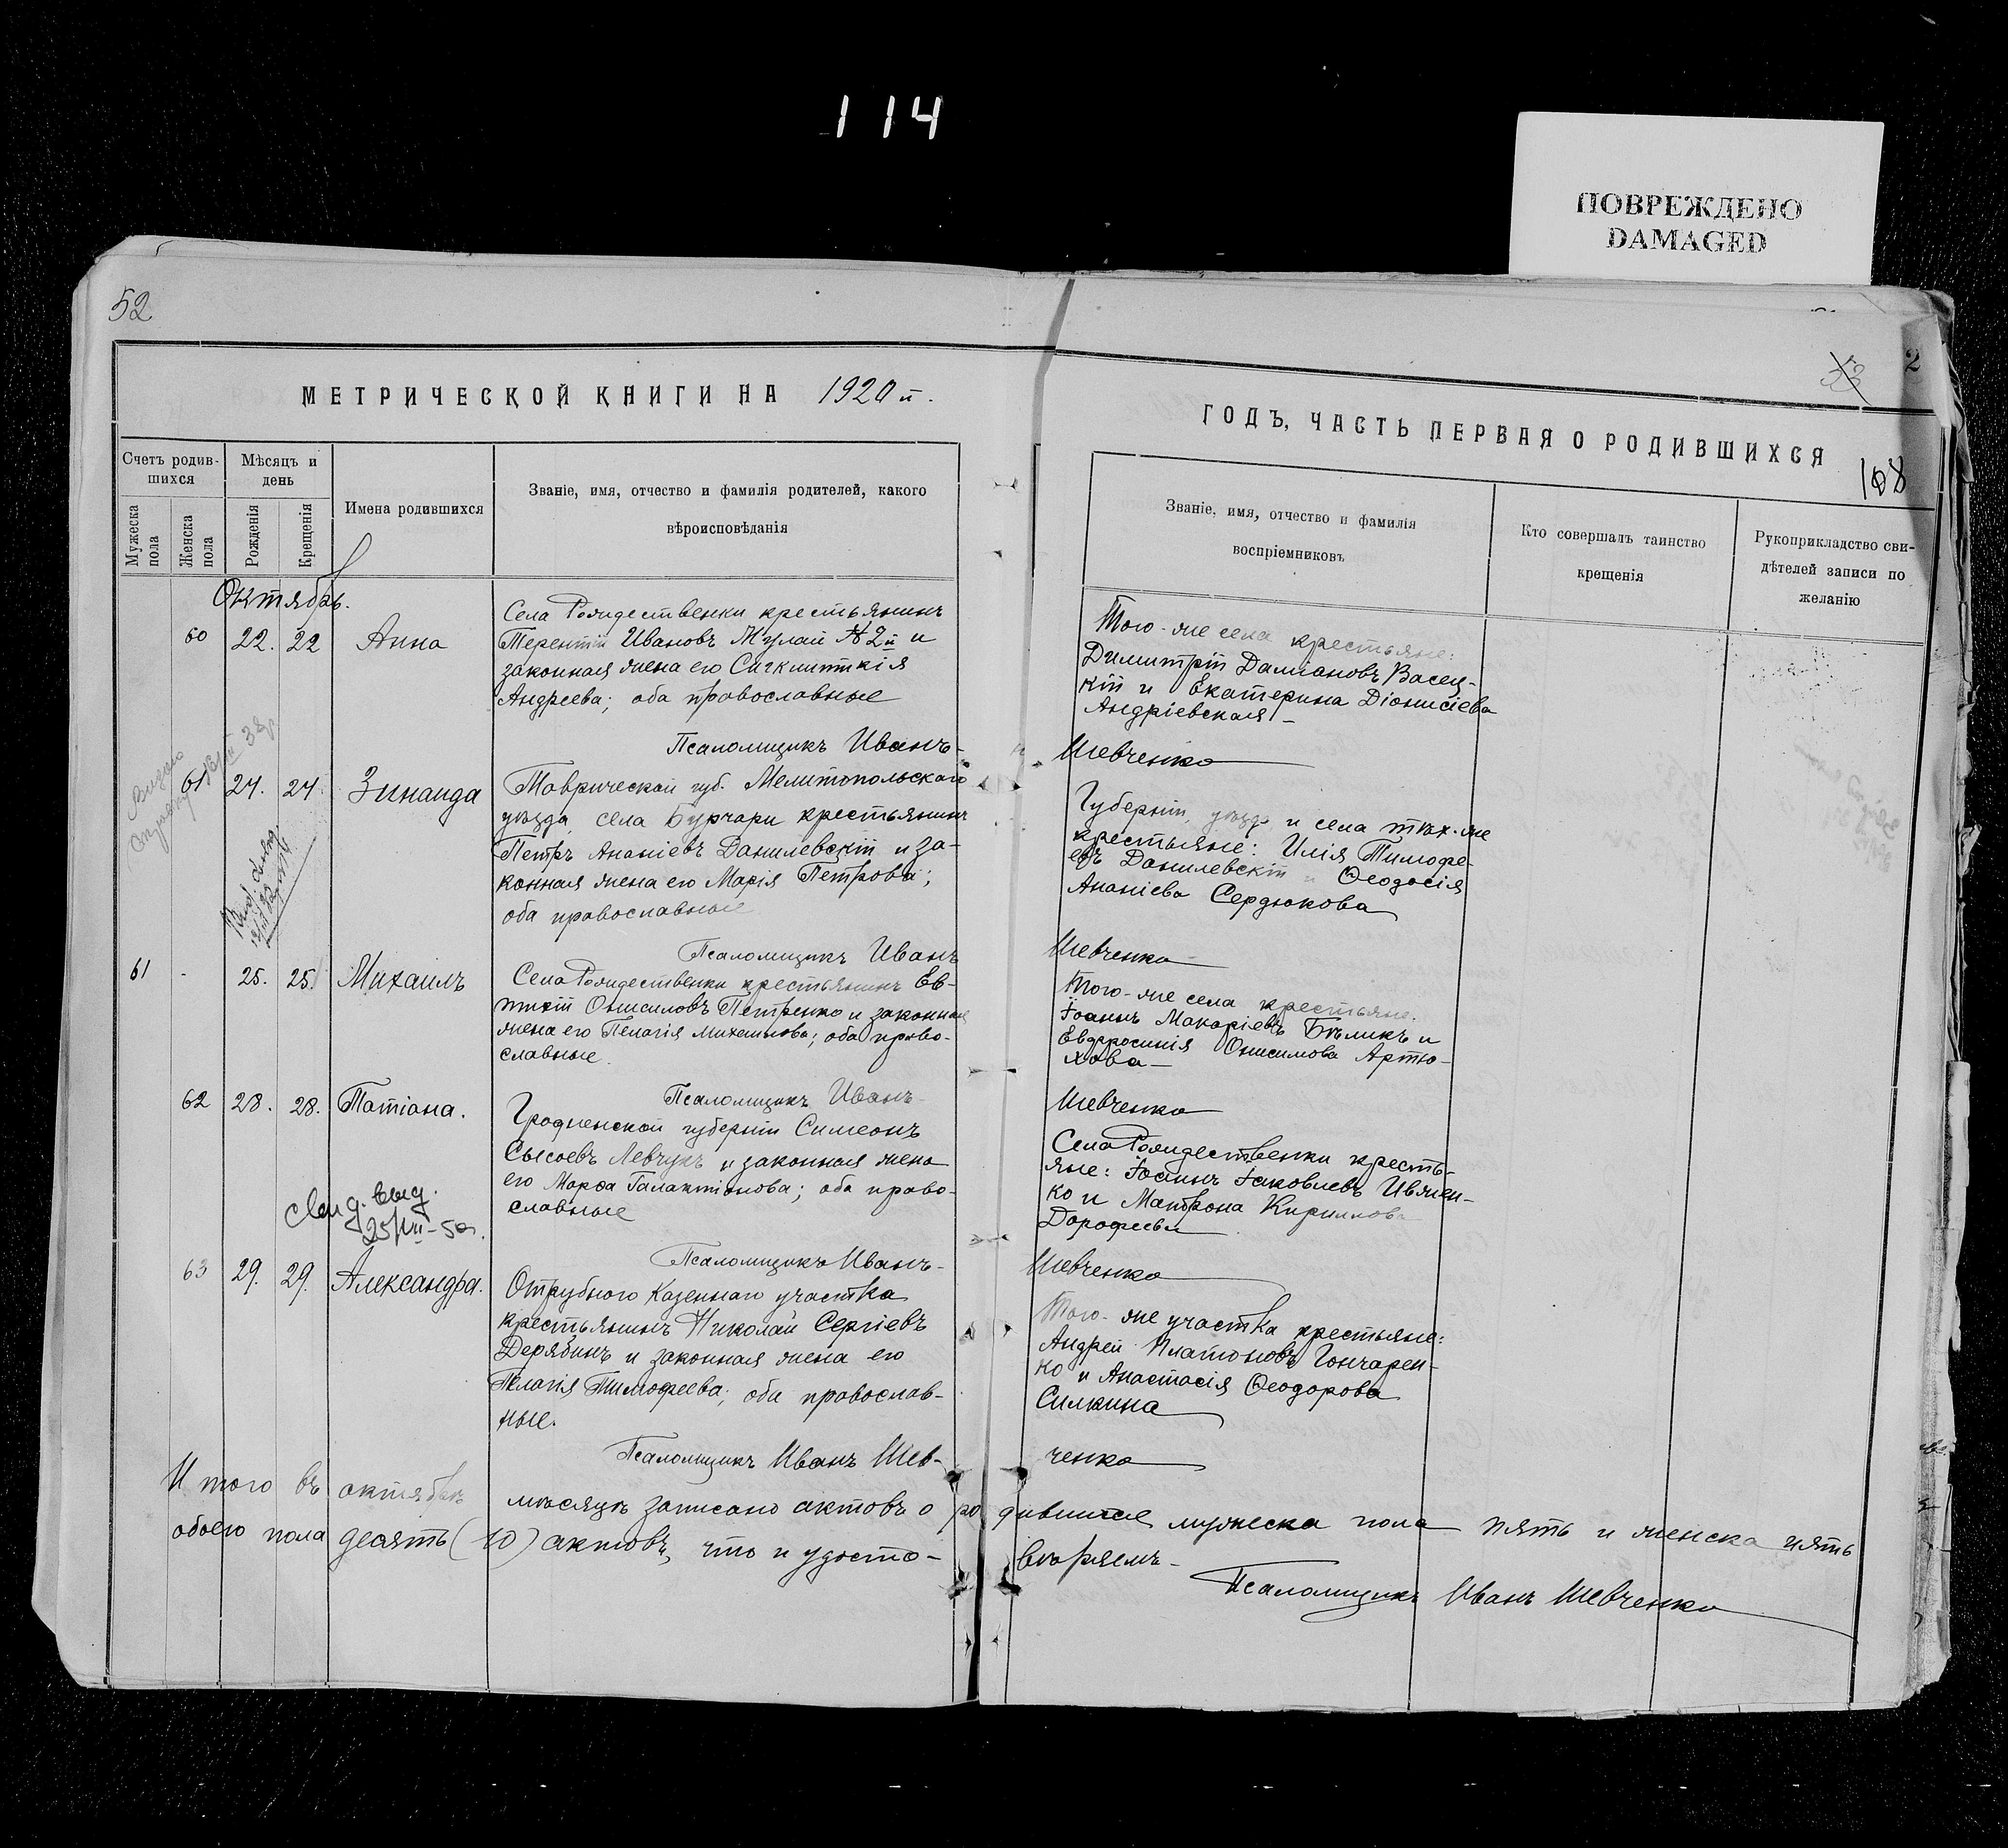 114
ПОВРЕЖДЕНО
DAMAGED
52
МЕТРИЧЕСКОЙ КНИГИ НА 1920 й.
Счетъ родив-
шихся
Мѣсяцъ и
день
Мужеска
пола
Женска
пола
Рожденія
Крещенія
Имена родившихся
Званіе, имя, отчество и фамилія родителей, какого
вѣроисповѣданія
Октябрь.
60 22. 22 Анна
Села Рождественки крестьянинъ
Терентій Ивановъ 2й и
законная жена его
Андреева; оба православные
Псаломщикъ Иванъ
61. 24. 24 Зинаида
Таврической губ. Мелитопольскаго
уѣзда, села Бурчари крестьянинъ
Петръ Ананіевъ Данилевскій и за-
конная жена его Марія Петрова;
оба православные
Псаломщикъ Иванъ
61 - 25. 25. Михаилъ
Села Рождественки крестьянинъ Ев-
тихій Онисимовъ Петренко и законная
жена его Пелагія Михаилова; оба право-
славные.
Псаломщикъ Иванъ
62 28. 28. Татіана.
Гродненской губерніи Симеонъ
Сысоевъ Левчукъ и законная жена
его Марѳа Галактіонова; оба право-
славные
Свид. выд.
25/VII-50г.
Псаломщикъ Иванъ
63 29. 29. Александра.
Отрубного Казеннаго участка
крестьянинъ Николай Сергіевъ
Дерябинъ и законная жена его
Пелагія Тимофеева; оба православ-
ные.
Псаломщикъ Иванъ Шев-
Итого въ октябрѣ мѣсяцѣ записано актовъ о ро
обоего пола десять (10) актовъ, что и удосто-
2
53
ГОДЪ, ЧАСТЬ ПЕРВАЯ О РОДИВШИХСЯ
168
Званіе, имя, отчество и фамилія
воспріемниковъ
Кто совершалъ таинство
крещенія
Рукоприкладство сви-
дѣтелей записи по
желанію
Того-же села крестьяне:
Димитрій Даміановъ Васец-
кій и Екатерина Діонисіева
Андріевская
Шевченко
Губерніи, уѣзда и села тѣхъ-же
крестьяне: Илія Тимофе-
евъ Данилевскій и Ѳеодосія
Ананіева Сердюкова
Шевченко
Того-же села крестьяне:
Іоаннъ Макаріевъ Бѣликъ и
Евфросинія Онисимова Артю-
хова
Шевченко
Села Рождественки кресть-
яне: Іоаннъ Іаковлевъ Ивжен-
ко и Матрона Кириллова
Дорофеева
Шевченко
Того-же участка крестьяне:
Андрей Платоновъ Гончарен-
ко и Анастасія Ѳеодорова
Силкина
ченко
дившихся мужеска пола пять и женска пять
вѣряемъ
Псаломщикъ Иванъ Шевченко